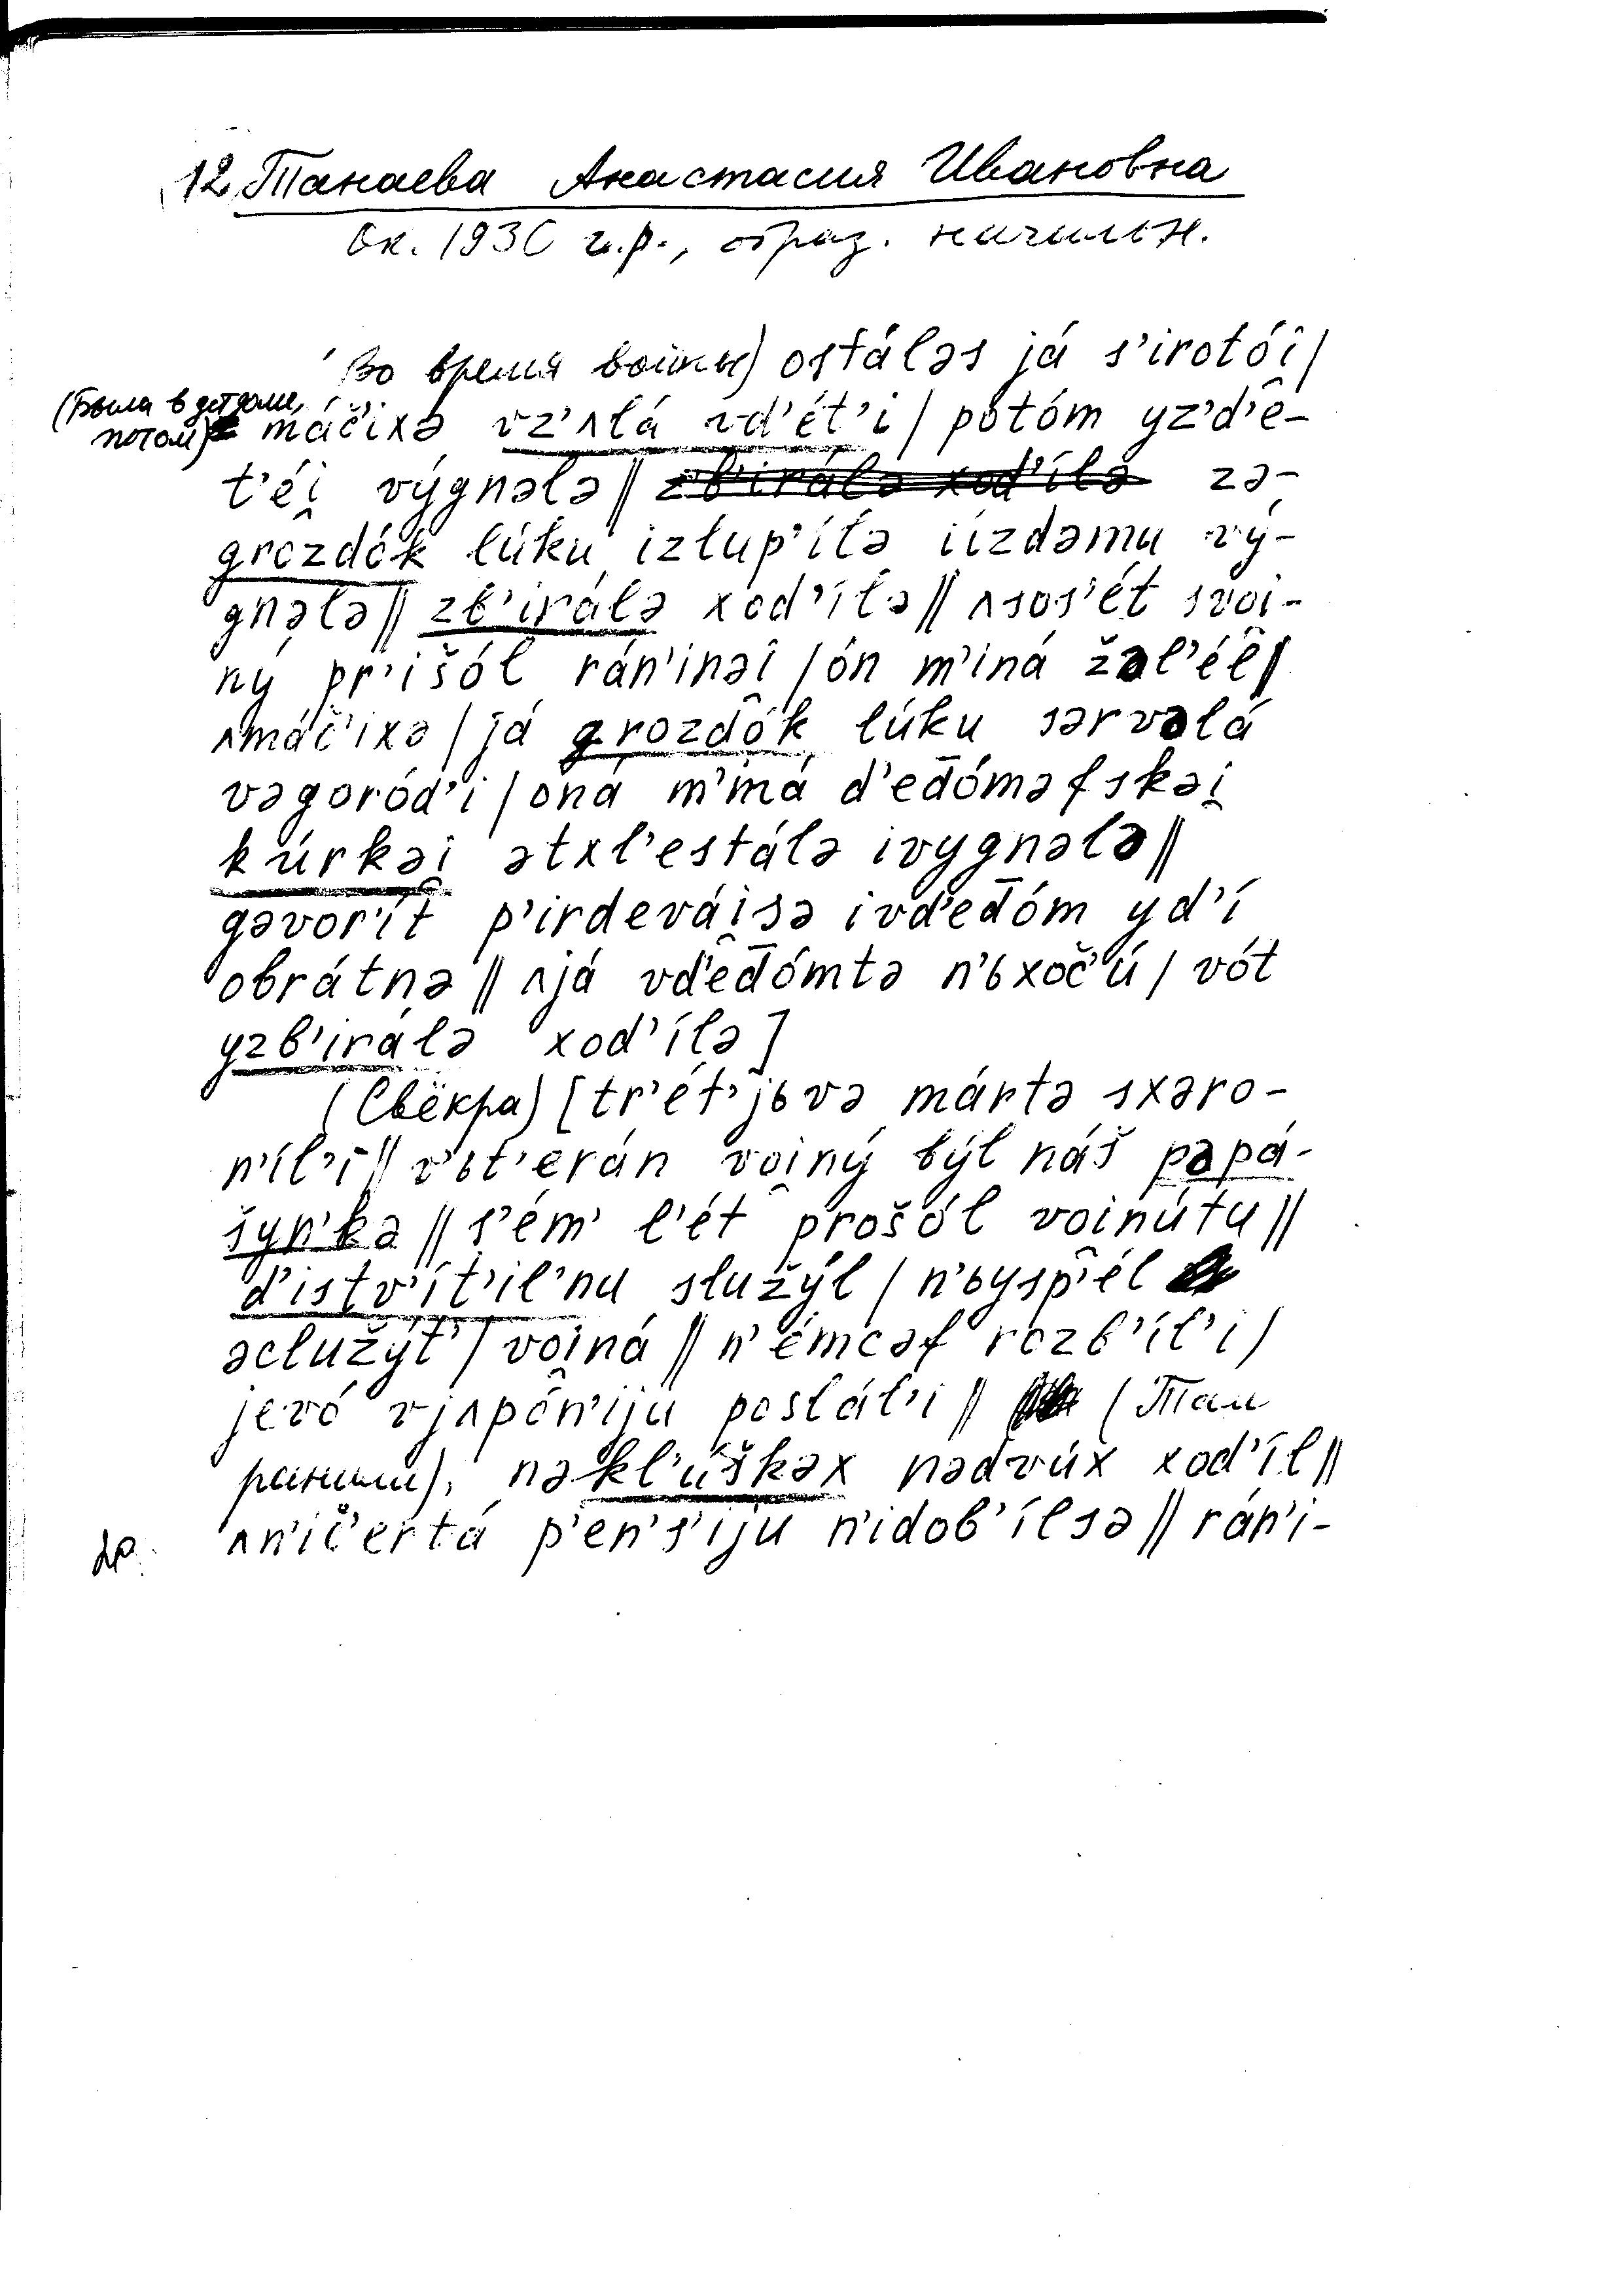 12. Танаева Анастасия Ивановна
Ок. 1930 г.р., образ. начальн.
(Во время войны) ostáləs já s’irotói̯ /
(Была в детдоме, потом) máč’ixə vz’ʌlá vd’ét’i / potóm yz’d’e-
t’éi̯ výgnələ // zə-
grozdók lúku izlup’ílə iizdəmu vý-
gnələ // zb’irálə xod’ílə // ʌsos’ét svoi̯-
ný pr’išól rán’inəi̯ / ón m’iná žəl’él //
ʌmáč’ixə / já grozdók lúku sərvəlá
vəgoród’i / oná m’iná d’ed̅óməfskəi̯
kúrkəi̯ ətxl’estálə ivygnələ //
gəvor’ít p’irdevái̯sə ivd’ed̅óm yd’í
obrátnə // ʌjá vd’ed̅ómtə n’ьxoč’ú / vót
yzb’irálə xod’ílə]
(Свёкра) [tr’ét’jьvə mártə sxəro-
n’íl’i // v’ьt’erán voi̯ný býl náš pəpá-
šyn’kə // s’ém’ l’ét prošól voi̯nútu //
d’istv’ít’il’nu služýl / n’ьysp’él
əclužýt’ / voi̯ná // n’émcəf rozb’íl’i /
jevó vjʌpón’iju poslál’i // (Там
ранили), nəkl’úškəx nədvúx xod’íl //
ʌn’ič’ertá p’en’s’iju n’idob’ílsə // rán’i-